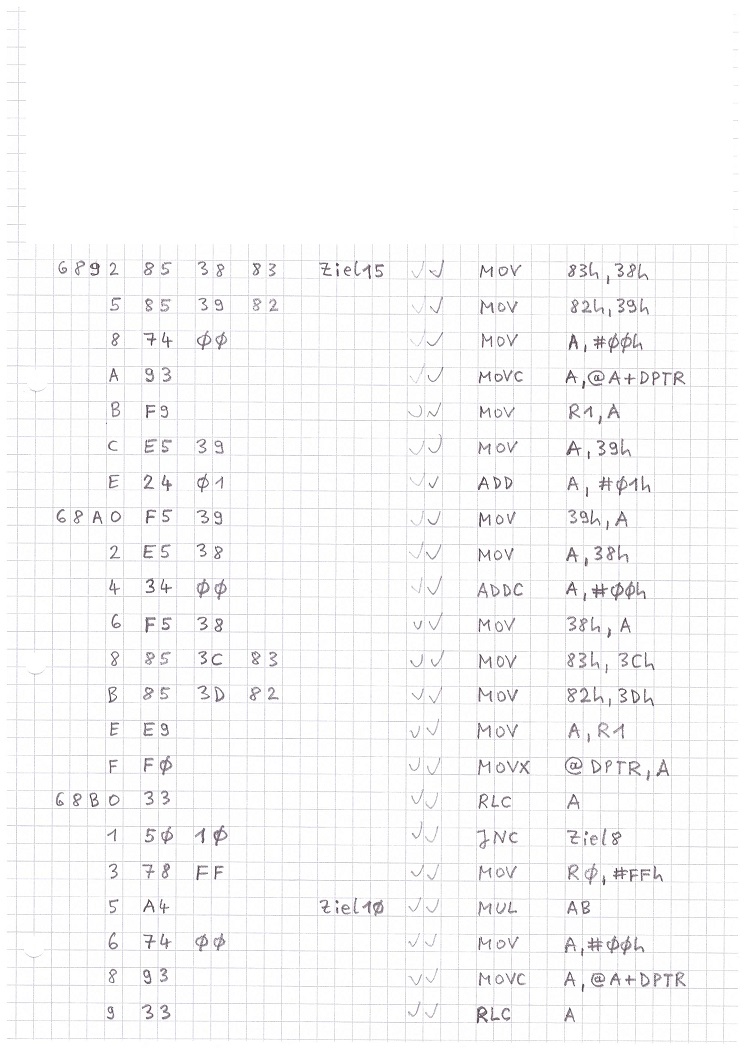 6892 85 38 83 Ziel15 ✓✓ MOV 83h,38h
5 85 39 82 ✓✓ MOV 82h,39h
8 74 ØØ ✓✓ MOV A,#ØØh
A 93 ✓✓ MOVC A,@A+DPTR
B F9 ✓✓ MOV R1,A
C E5 39 ✓✓ MOV A,39h
E 24 Ø1 ✓✓ ADD A,#Ø1h
68A0 F5 39 ✓✓ MOV 39h,A
2 E5 38 ✓✓ MOV A,38h
4 34 ØØ ✓✓ ADDC A,#ØØh
6 F5 38 ✓✓ MOV 38h,A
8 85 3C 83 ✓✓ MOV 83h,3Ch
B 85 3D 82 ✓✓ MOV 82h,3Dh
E E9 ✓✓ MOV A,R1
F FØ ✓✓ MOVX @DPTR,A
68B0 33 ✓✓ RLC A
1 5Ø 1Ø ✓✓ JNC Ziel8
3 78 FF ✓✓ MOV RØ,#FFh
5 A4 Ziel1Ø ✓✓ MUL AB
6 74 ØØ ✓✓ MOV A,#ØØh
8 93 ✓✓ MOVC A,@A+DPTR
9 33 ✓✓ RLC A